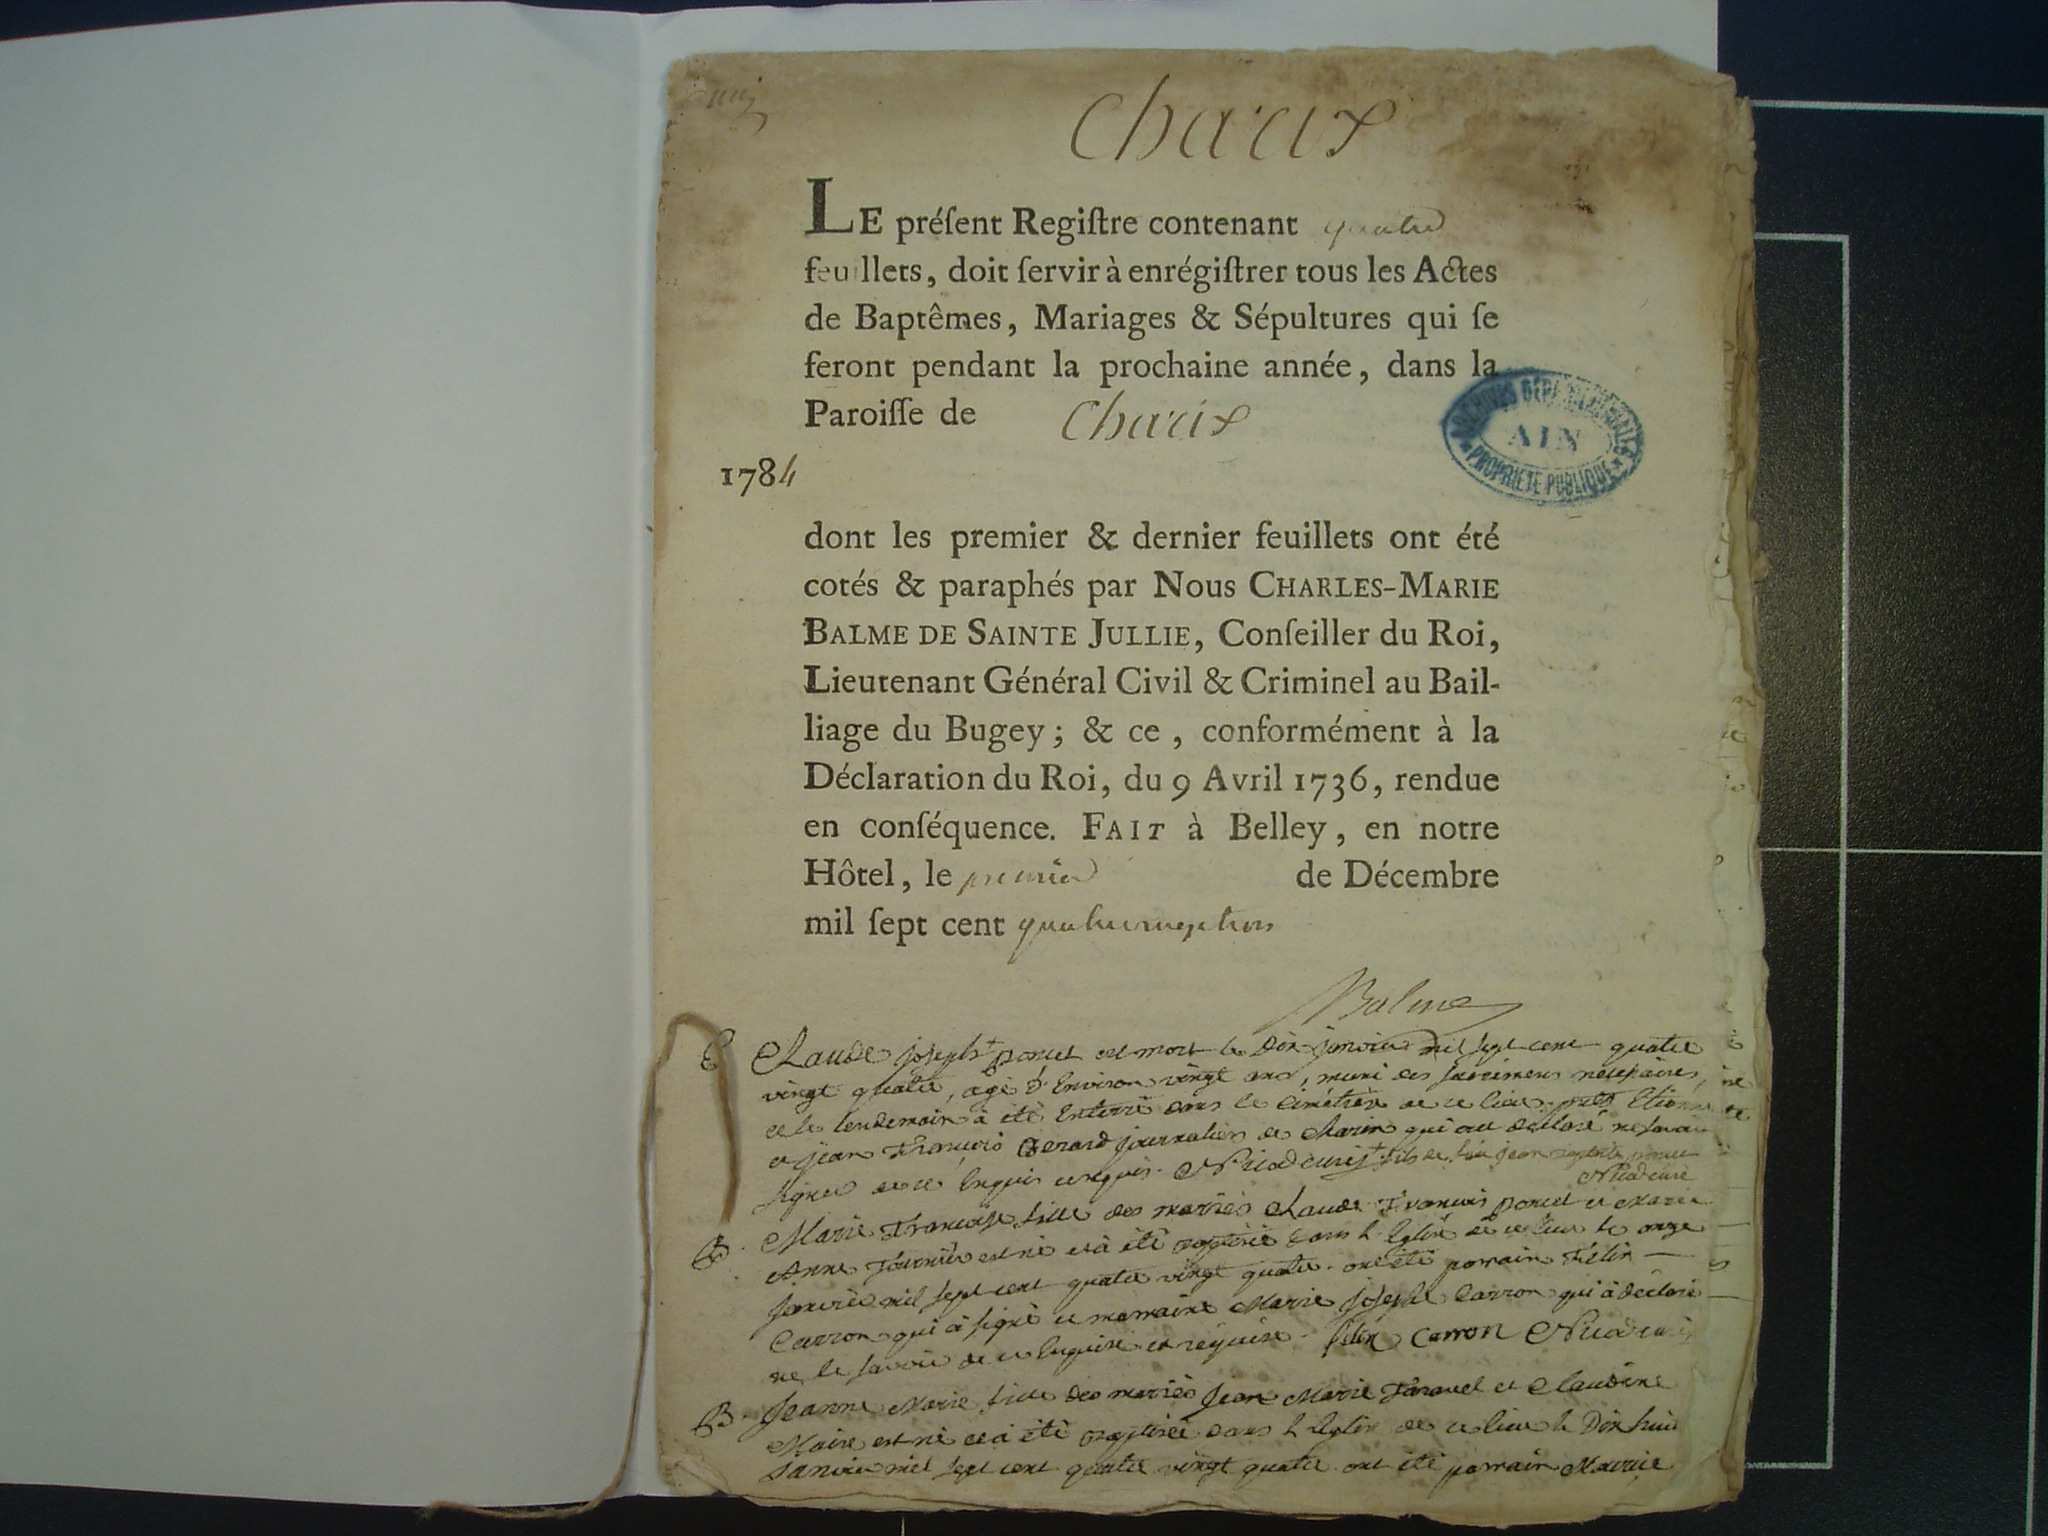 Charix
LE préſent Regiſtre contenant quatre
feuillets, doit ſervir à enrégiſtrer tous les Actes
de Baptêmes, Mariages & Sépultures qui ſe
feront pendant la prochaine année, dans la
Paroiſſe de Charix
ARCHIVES DÉPARTEMENTALES
AIN
PROPRIÉTÉ PUBLIQUE
1784
dont les premier & dernier feuillets ont été
cotés & paraphés par Nous CHARLES-MARIE
BALME DE SAINTE JULLIE, Conſeiller du Roi,
Lieutenant Général Civil & Criminel au Bail-
liage du Bugey; & ce, conformément à la
Déclaration du Roi, du 9 Avril 1736, rendue
en conſéquence. FAIT à Belley, en notre
Hôtel, le premier de Décembre
mil ſept cent quatrevingttrois
Balme
Claude joseph poncet est mort le dix janvier mil sept cent quatre
vingt quatre, agé d'environ vingt ans, muni des sacremens necessaires,
et le lendemain à été enterré dans le cimétière de ce lieu. Etienne
et jean François Gerard journaliers de Charix qui ont déclaré ne savoir
signer de ce enquis et requis. Nicod curé fils de feu jean poncet
Nicod curé
B. Marie Françoise fille des mariés Claude François poncet et Marie
Anne est né et à été baptisée dans l'Eglise de ce lieu le onze
janvier mil sept cent quatre vingt quatre. ont été parrain Félix
Carron qui à signé et marraine Marie joseph Carron qui à déclaré
ne le savoir de ce enquise et requise. félix carron Nicod curé
B. Jeanne Marie fille des mariés Jean Marie et Claudine
est né et à été baptisée dans l'Eglise de ce lieu le Dix huit
Janvier mil sept cent quatre vingt quatre. ont été parrain Maurice